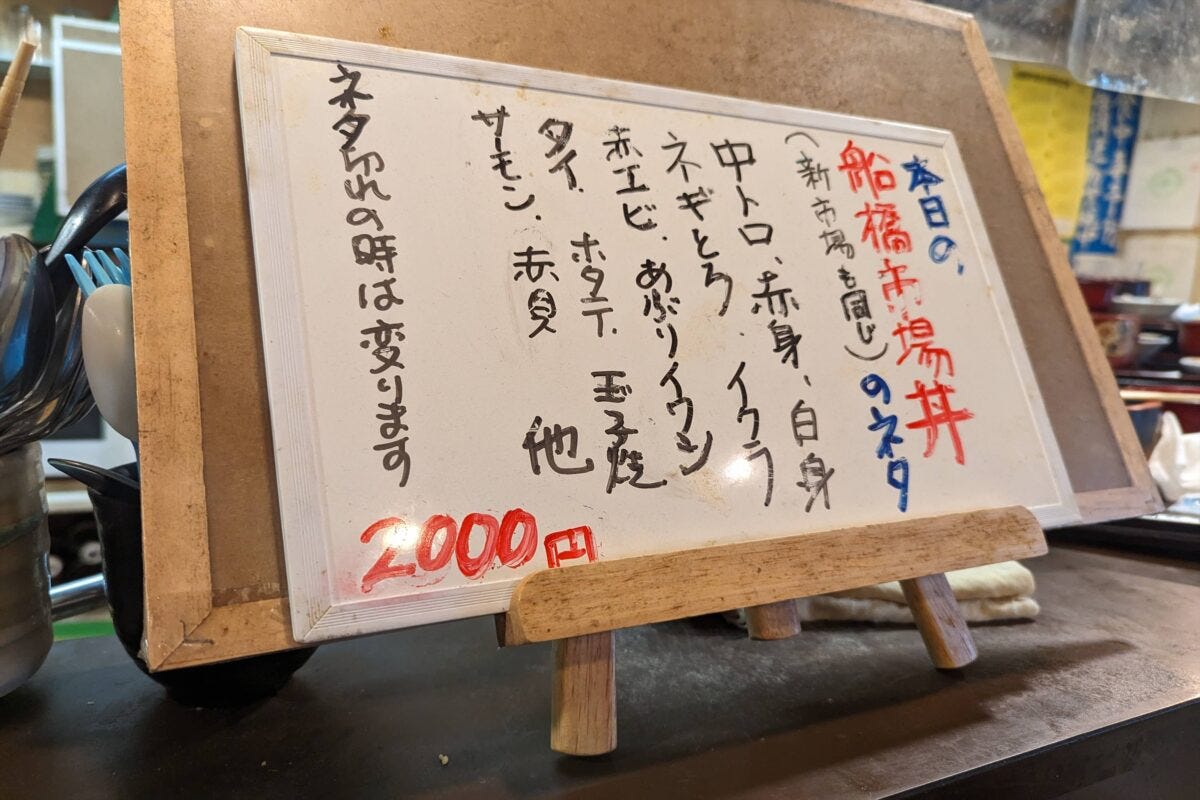 本日の、
船橋市場丼
のネタ
(新市場も同じ)
中トロ、赤身、白身
ネギとろ、イクラ
赤エビ、あぶりイワシ
タイ、ホタテ、玉子焼
サーモン、赤貝 他
ネタ切れの時は変ります
2000円